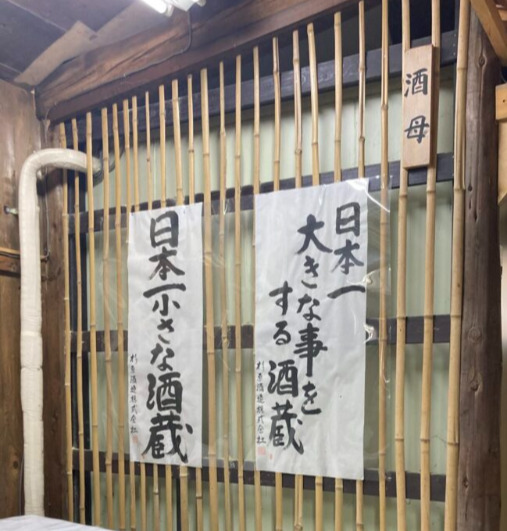 酒母
日本一
大きな事を
する酒蔵
杉原酒造株式会社
日本一小さな酒蔵
杉原酒造株式会社